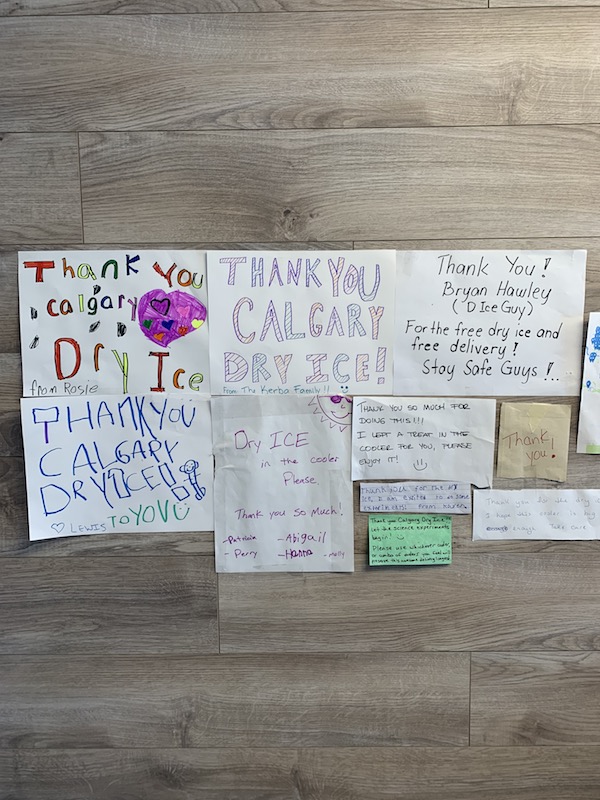 Thank You
Calgary
Dry Ice
from Rosie
THANK YOU
CALGARY
DRY ICE!
From The Kierba Family!!
Thank You!
Bryan Hawley
(D Ice Guy)
For the free dry ice and
free delivery!
Stay Safe Guys!..
THANK YOU
CALGARY
DRY ICE!
LEWIS TO YOU
Dry ICE
in the cooler
Please
Thank you so Much!
- Abigail
- Perry - Hanna - Molly
THANK YOU SO MUCH FOR
DOING THIS!!!
I LEFT A TREAT IN THE
COOLER FOR YOU, PLEASE
ENJOY IT!
Thank
you!
Thank you for the
Ice, I am excited to do some
experiments. From
Thank you for the dry
I hope this order is big
enough. Take care
Thank you Calgary Dry Ice
Let the science experiments
begin!
Please use whichever cooler